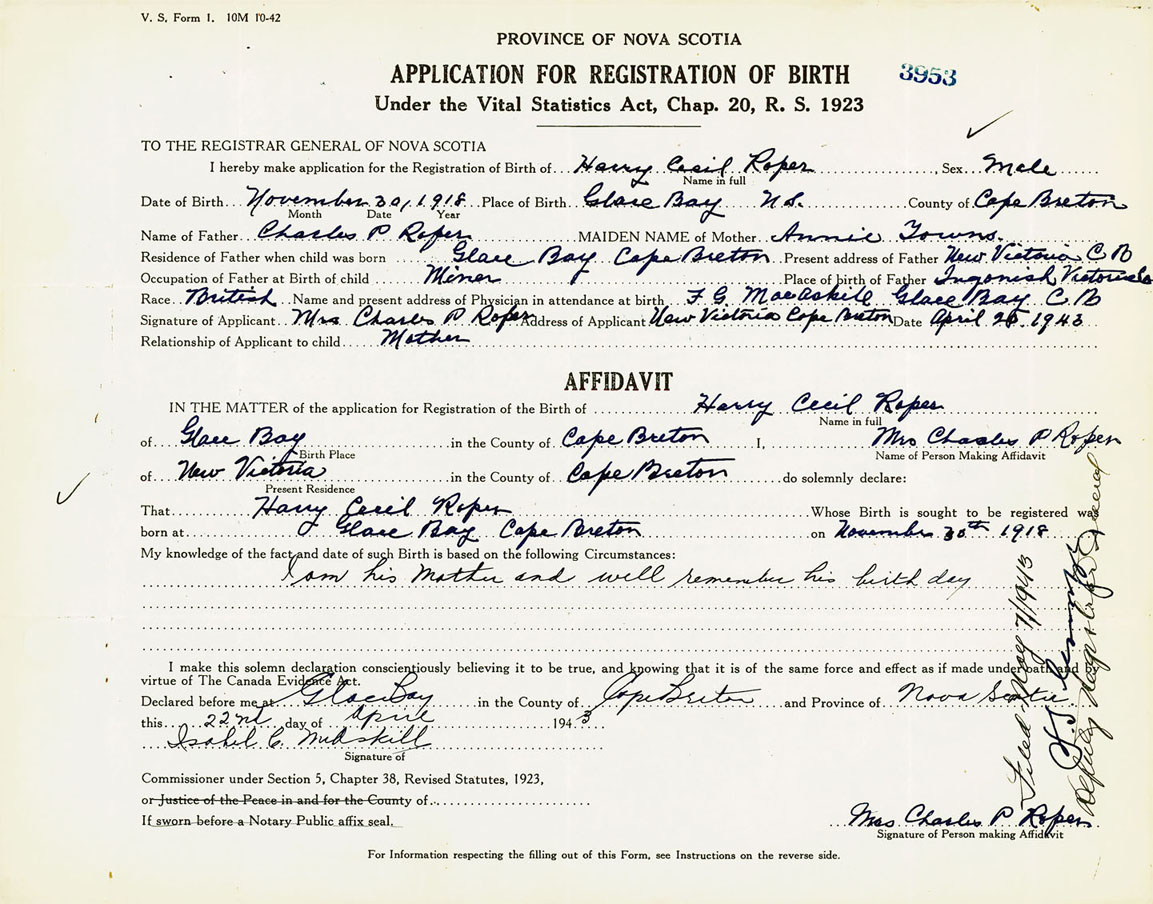 V. S. Form 1. 10M 10-42
PROVINCE OF NOVA SCOTIA
APPLICATION FOR REGISTRATION OF BIRTH 3953
Under the Vital Statistics Act, Chap. 20, R. S. 1923
TO THE REGISTRAR GENERAL OF NOVA SCOTIA
I hereby make application for the Registration of Birth of Harry Cecil Roper, Sex Male
Name in full
Date of Birth November 30, 1918 Place of Birth Glace Bay N.S. County of Cape Breton
Month Date Year
Name of Father Charles P Roper MAIDEN NAME of Mother Annie Towns.
Residence of Father when child was born Glace Bay Cape Breton Present address of Father New Victoria C B
Occupation of Father at Birth of child Miner Place of birth of Father Ingonish Victoria
Race British Name and present address of Physician in attendance at birth F. G. MacAskill Glace Bay C. B
Signature of Applicant Mrs Charles P Roper Address of Applicant New Victoria Cape Breton Date April 1943
Relationship of Applicant to child Mother
AFFIDAVIT
IN THE MATTER of the application for Registration of the Birth of Harry Cecil Roper
Name in full
of Glace Bay in the County of Cape Breton I, Mrs Charles P Roper
Birth Place Name of Person Making Affidavit
of New Victoria in the County of Cape Breton do solemnly declare:
Present Residence
That Harry Cecil Roper Whose Birth is sought to be registered was
born at Glace Bay Cape Breton on November 30th 1918
My knowledge of the fact and date of such Birth is based on the following Circumstances:
I am his Mother and will remember his birth day
I make this solemn declaration conscientiously believing it to be true, and knowing that it is of the same force and effect as if made under oath and by
virtue of The Canada Evidence Act.
Declared before me at Glace Bay in the County of Cape Breton and Province of Nova Scotia
this 22nd day of April 1943
Isabel C. McAskill
Signature of
Commissioner under Section 5, Chapter 38, Revised Statutes, 1923,
or Justice of the Peace in and for the County of
If sworn before a Notary Public affix seal.
Mrs Charles P Roper
Signature of Person making Affidavit
For Information respecting the filling out of this Form, see Instructions on the reverse side.
Filed May 7/1943
Deputy Registrar General